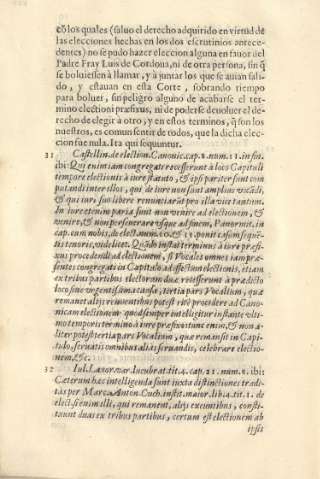 cõ los quales (saluo el derecho adquirido en virtud de
las elecciones hechas en los dos escrutinios antece-
dentes) no se pudo hazer eleccion alguna en fauor del
Padre Fray Luis de Cordoua, ni de otra persona, sin q̃
se boluiessen à llamar, y à juntar los que se auian sali-
do, y estauan en esta Corte, sobrando tiempo
para boluer, sin peligro alguno de acabarse el ter-
mino electioni præfixus, ni de poderse deuoluer el de-
recho de elegir à otro, y en estos terminos, q̃ son los
nuestros, es comun sentir de todos, que la dicha elec-
cion fue nula. Ita qui sequuntur.
31 Castellin. de election. Canonic. cap. 2. num. 11. in fin.
ibi: Qui enim iam congregati recesserunt à loco Capituli
tempore electionis à iure statuto, & ipsi pariter sunt com
putandi inter illos, qui de iure non sunt amplius vocãdi,
& qui iuri suo libere renunciarũt pro illa vice tantum.
In iure etenim paria sunt non venire ad electionem, &
venire, & non perseuerare vsque ad finem, Panormit. in
cap. cum nobis, de elect. num. 13. ponit casum seque-
tis tenoris, videlicet. Quãdo instat terminus à iure præfi-
xus procedendi ad electionem, si Vocales omnes iam præ-
sentes congregati in Capitulo ad effectum electionis, etiam
ex tribus partibus electorum duæ recesserunt à prædicto
loco sine vrgentissima causa, tertia pars Vocalium, quæ
remanet alijs recuentibus potest ritè procedere ad Cano-
nicam electionem: quod semper intelligitur instante vlti-
mo temporis termino à iure præfixo tunc enim, & non a-
liter potest tertia pars Vocalium, quæ remansit in Capi-
tulo, seruatis omnibus alijs seruandis, celebrare electio-
nem, &c.
32 Iul. Lauor. var. lucubrat. tit. 4. cap. 21. num. 8. ibi:
Cæterum hæc intelligenda sunt iuxta distinctiones tradi-
tas per Marc. Anton. Cuch. instit. maior. lib. 4. tit. 1. de
elect. si enim illi, qui remanent, alijs exeuntibus, consti-
tuunt duas ex tribus partibus, certum est electionem ab
ipsis